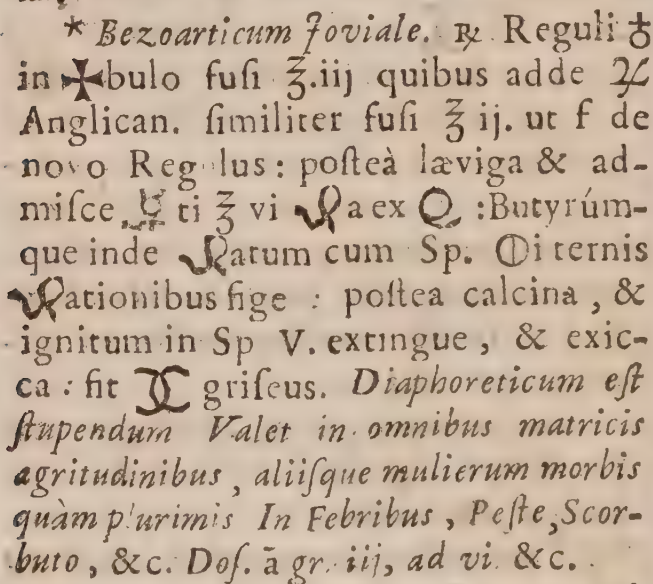 * Bezoarticum Joviale. ℞ Reguli ♁
in ✠bulo fuſi ℥.iij quibus adde ♃
Anglican. ſimiliter fuſi ℥ ij. ut f de
novo Regulus: poſteà læviga & ad-
miſce ti ℥ vi a ex :Butyrúm-
que inde atum cum Sp. i ternis
ationibus fige : poſtea calcina, &
ignitum in Sp V. extingue, & exic-
ca : fit griſeus. Diaphoreticum eſt
ſtupendum Valet in omnibus matricis
agritudinibus, aliiſque mulierum morbis
quàm plurimis In Febribus, Peſte, Scor-
buto, &c. Doſ. ā gr. iij, ad vi. &c.